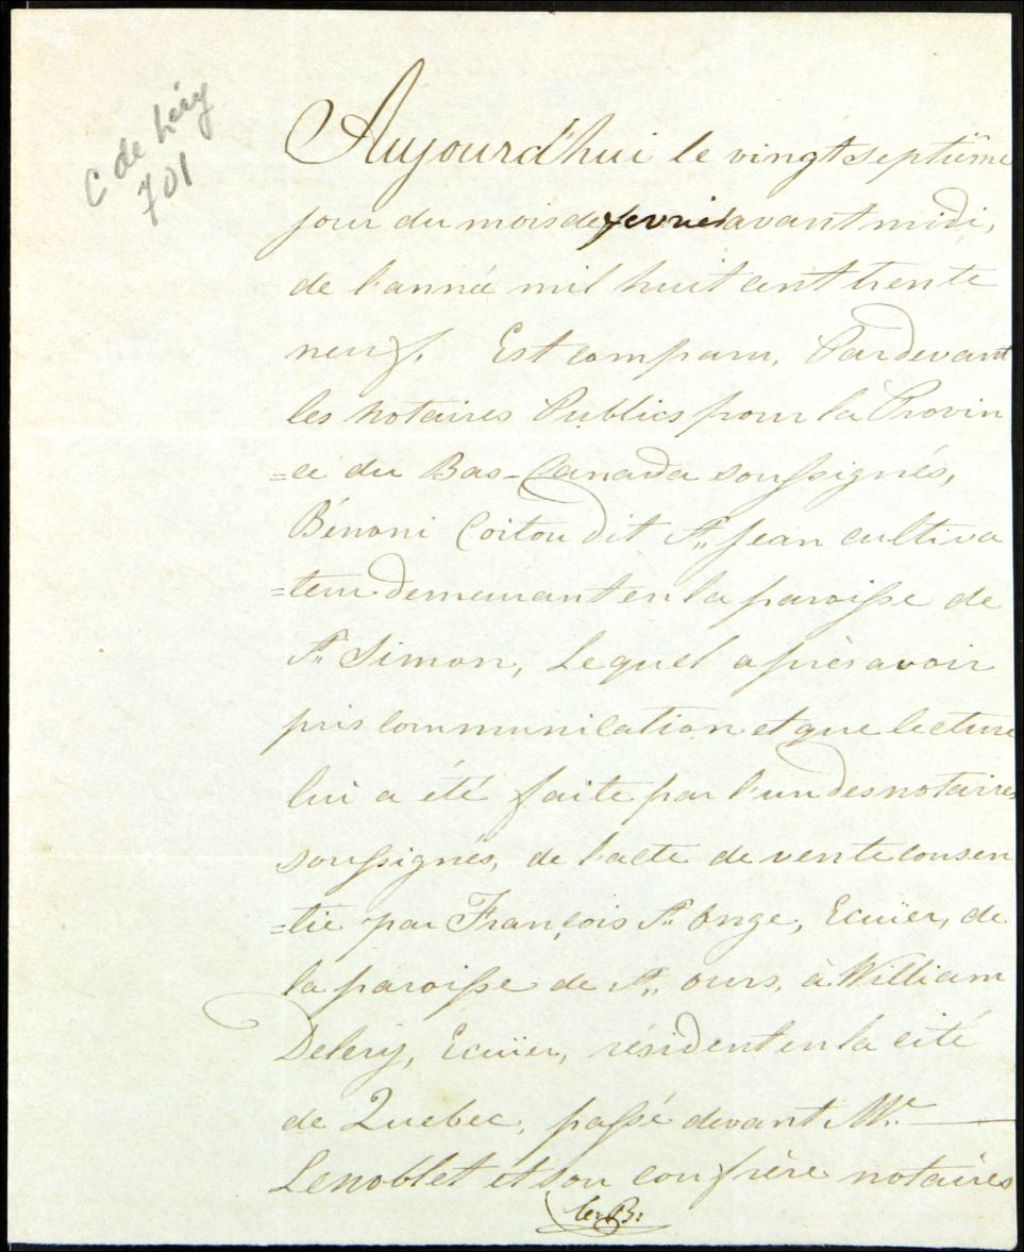 C de Léry
701
Aujourd'hui le vingt septième
jour du mois de fevrier avant midi,
de l'année mil huit cent trente
neuf. Est comparu, Pardevant
les Notaires Publics pour la Provin
=ce du Bas-Canada soussignés,
Bénoni Coitou dit St. Jean cultiva
=teur demeurant en la paroisse de
St. Simon, Lequel après avoir
pris communication et que lecture
lui a été faite par l'un des notaires
soussignés, de l'acte de vente consen
=tie par François St. Onge, Ecuïer, de
la paroisse de St. Ours, à William
Delery, Ecuïer, résident en la cité
de Quebec, passé devant Mr.
Lenoblet et son confrère notaires